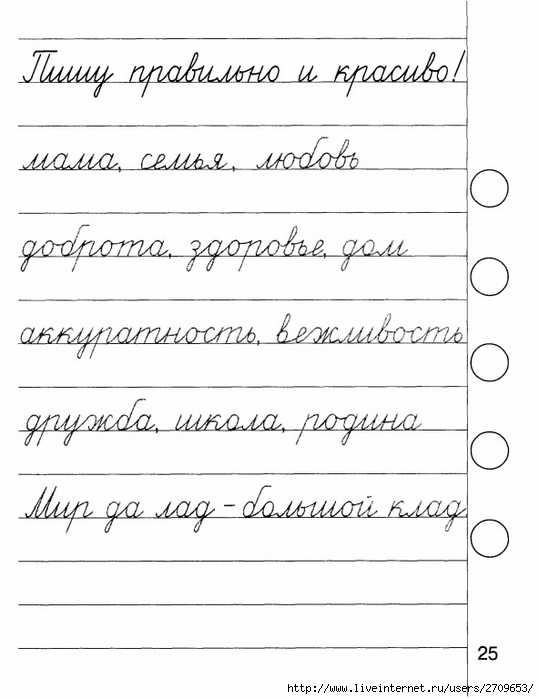 Пишу правильно и красиво!
мама, семья, любовь
доброта, здоровье, дом
аккуратность, вежливость
дружба, школа, родина
Мир да лад – большой клад
25
http://www.liveinternet.ru/users/2709653/